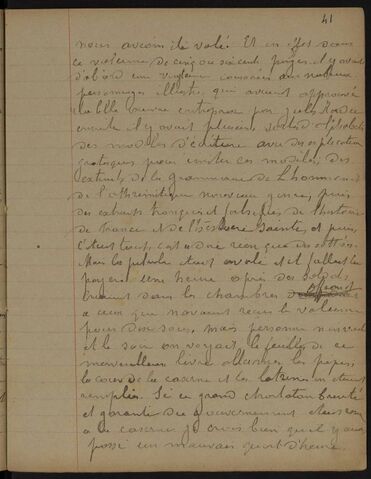 41
nous avaient été volé. Et en effet dans
ce volume de cinq ou six cents pages il y avait
d'abord une vingtaine consacrées aux
personnages illustres qui avaient approuvé
la belle œuvre entreprise par Jules
ensuite il y avait plusieurs
des modèles d'écriture avec des explications
grotesques pour imiter ces modèles, des
extraits de la grammaire de Lhomond
de l'arithmétique nouveau genre, puis
des extraits tronqués et falsifiés de l'histoire
de France et de l'histoire Sainte, et puis,
c'était tout, c'est à dire rien que des sottises.
Mais le était volé et il fallait
payer. Une heure après des soldats
dans les chambres
à ceux qui n'avaient reçu le volume
pour dix sous, mais personne
et le soir on voyait les feuilles de ce
merveilleux livre allumer les pipes,
la cour de la caserne et les latrines en étaient
remplies. Si ce grand charlatan breveté
et garanti du gouvernement
à la caserne je crois bien qu'il y aurait
passé un mauvais quart d'heure.